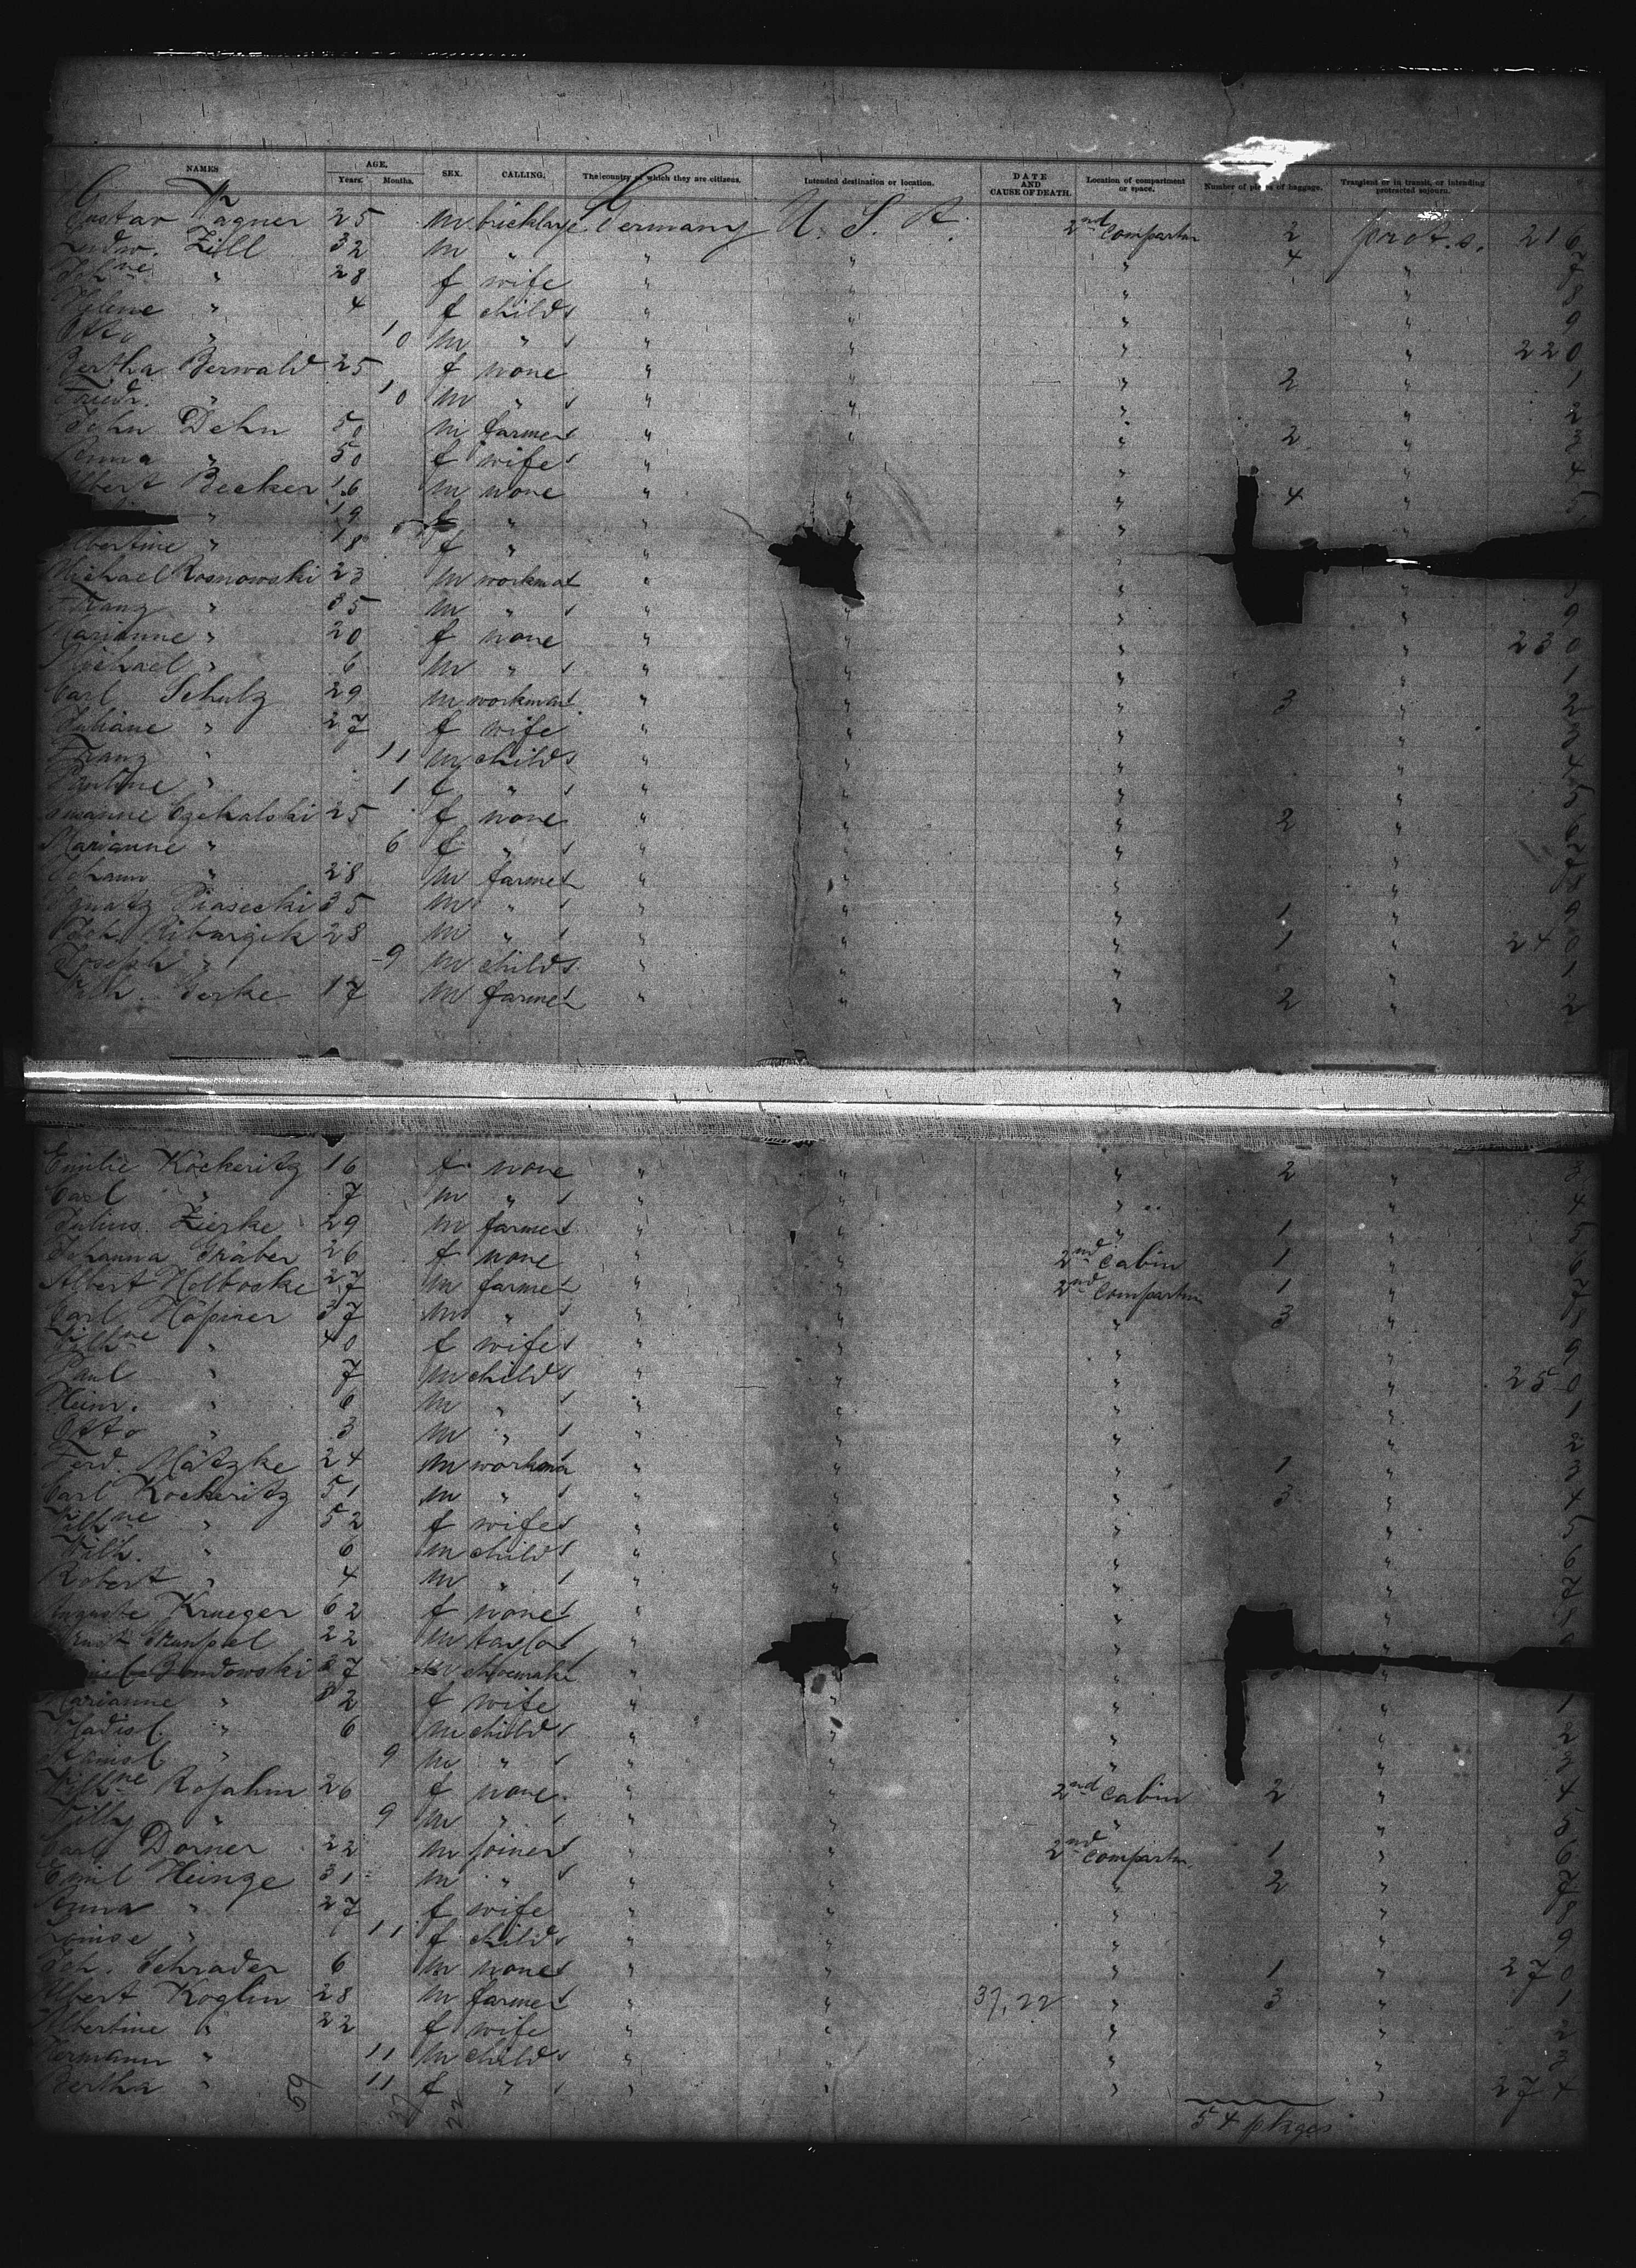 NAMES AGE. Years. Months. SEX. CALLING. The country of which they are citizens. Intended destination or location. DATE AND CAUSE OF DEATH. Location of compartment or space. Number of pieces of baggage. Transient or in transit, or intending protracted sojourn.
Gustav Wagner 25 m bricklaye Germany U. S. A. 2nd compartm 2 prot. s. 216
Ludw. Zill 32 m " " " " 4 " 7
Joh.ne " 28 f wife " " " " 8
Helene " 4 f child s " " " " 9
Otto " 10 m " s " " " " 220
Bertha Berwald 25 f none " " " 2 " 1
Friedr. " 10 m " s " " " " 2
John Dehn 50 m farmer s " " " 2 " 3
Anna " 50 f wife s " " " " 4
Albert Becker 16 m none " " " 4 " 5
" 19 f " " "
Albertine " 18 f " " "
Michael Rosnowski 23 m workma " "
Franz " 35 m " s " " " " 9
Marianne " 20 f none " " " " 230
Michael " 6 m " s " " " " 1
Carl Schulz 29 m workman " " " 3 " 2
Juliane " 27 f wife " " " " 3
Franz " 11 m child s " " " " 4
Pauline " 1 f " s " " " " 5
Susanne Czekalski 25 f none " " " 2 " 6
Marianne " 6 f " s " " " " 7
Johann " 28 m farmer " " " " 8
Ignatz Piasecki 35 m " s " " " 1 " 9
Joh. 28 m " s " " " 1 " 240
Joseph " 9 m child s " " " " 1
Wilh. Gerke 17 m farmer " " " 2 " 2
Emilie Köckeritz 16 f none " " " 2 " 3
Carl " 7 m " s " " " " 4
Julius Zierke 29 m farmer " " " 1 " 5
Johanna Gräber 26 f none " " 2nd cabin 1 " 6
Albert Holboske 27 m farmer " " 2nd compartm 1 " 7
Carl Höpiner 37 m " s " " " 3 " 8
Wilh.ne " 40 f wife s " " " " 9
Paul " 7 m child s " " " " 250
Heinr. " 6 m " s " " " " 1
Otto " 3 m " s " " " " 2
Ferd. Mätzke 24 m workma " " " 1 " 3
Carl Kockeritz 51 m " s " " " 3 " 4
Wilh.ne " 52 f wife s " " " " 5
Wilh. " 6 m child s " " " " 6
Robert " 4 m " s " " " " 7
Auguste Krueger 62 f none s " " " "
Ernst 22 m taylor " " "
37 m shoemake " " "
Marianne " 32 f wife " " " " 1
Wladisl. " 6 m child s " " " " 2
Stanisl. " 9 m " s " " " " 3
Wilh.ne Rosahm 26 f none " " 2nd cabin 2 " 4
Willy " 9 m " s " " " " 5
Carl Dorner 22 m joiner s " " 2nd compartm. 1 " 6
Emil Heinze 31 m " s " " " 2 " 7
Anna " 27 f wife " " " " 8
Louise " 11 f child s " " " " 9
Joh. Schrader 6 m none s " " " 1 " 270
Albert Koglin 28 m farmer " " 37,22 " 3 " 1
Albertine " 22 f wife " " " " 2
Hermann " 11 m child s " " " " 3
Bertha " 11 f " s " " " " 274
59 37 22 54 pkages